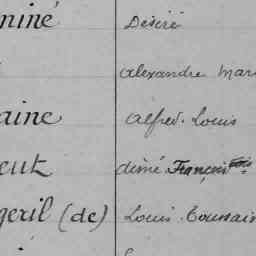 miné Désiré
Alexandre Mari
aine Alfred. Louis
eut aimé François
geril (de) Louis. Toussain